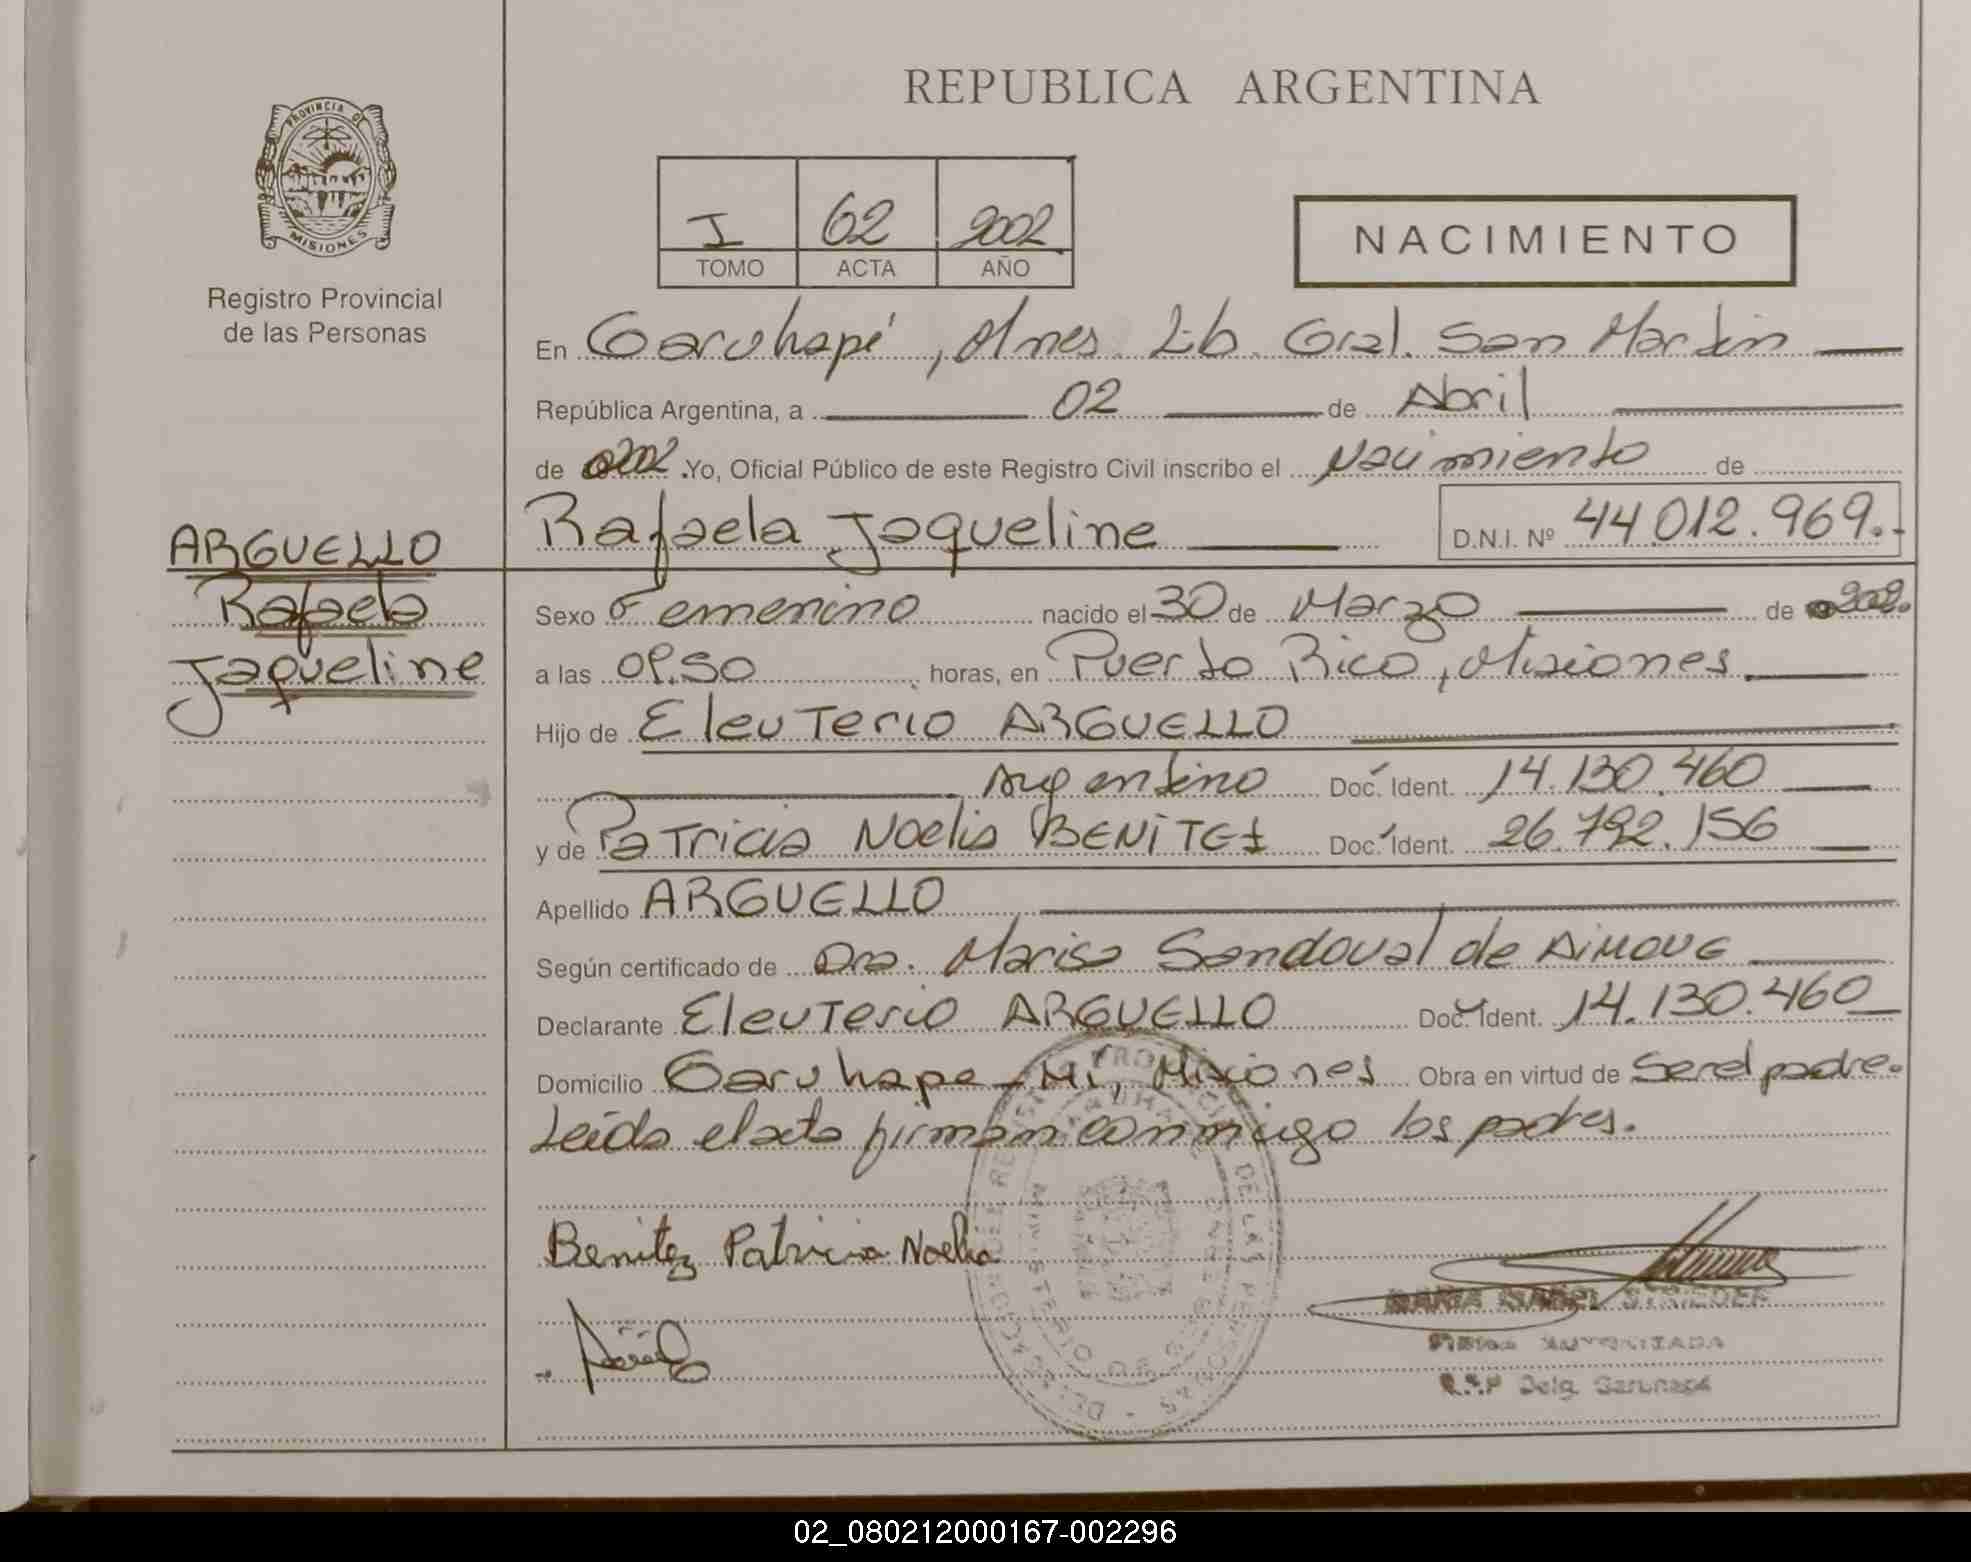 REPUBLICA ARGENTINA
PROVINCIA DE
MISIONES
Registro Provincial
de las Personas
I 62 2002
TOMO ACTA AÑO
NACIMIENTO
En Garuhapé, Mnes. Lib. Gral. San Martin
República Argentina, a 02 de Abril
de 2002 .Yo, Oficial Público de este Registro Civil inscribo el Nacimiento de
Rafaela Jaqueline D.N.I. Nº 44.012.969.-
ARGUELLO
Rafaela
Jaqueline
Sexo Femenino nacido el 30 de Marzo de 2002.
a las horas, en Puerto Rico, Misiones
Hijo de Eleuterio ARGUELLO
Argentino Doc. Ident. 14.130.460
y de Patricia Noelia BENITEZ Doc. Ident. 26.792.156
Apellido ARGUELLO
Según certificado de Dra. Marisa Sandoval de
Declarante Eleuterio ARGUELLO Doc. Ident. 14.130.460
Domicilio Garuhape-Mi, Misiones Obra en virtud de Ser el padre.
Leída el acta firman conmigo los padres.
Benitez Patricia Noelia
MARIA ISABEL STRIEDER
FIRMA AUTORIZADA
R.P.P Delg. Garuhapé
02_080212000167-002296